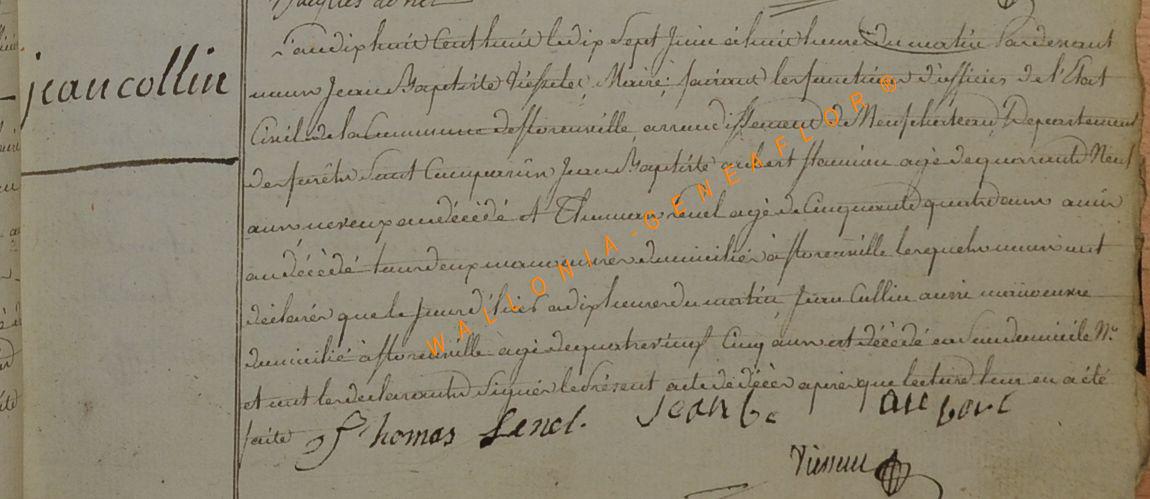 jean collin
L'an dix huit cent huit le dix sept Juin à huit heures du matin Pardevant
nous Jean Baptiste Maire faisant les fonctions d'officier de l'Etat
Civil de la Commune de florenville arrondissement de Neufchateau Departement
des forêts sont comparus Jean Baptiste aubert agé de quarante Neuf
ans neveux au décédé et Thomas Lenel agé de Cinquante quatre ans amis
au décédé tous deux manouvres domiciliés à florenville lesquels nous ont
déclarés que le jour d'hier a dix heures du matin Jean Collin aussi manouvre
domicilié à florenville agé de quatre vingt Cinq ans est décédé en son domicile N.
et ont les déclarants signés le présent acte de décès apres que lecture leur en a été
faite Thomas Lenel. Jean b.
WALLONIA-GENEAFLOR®